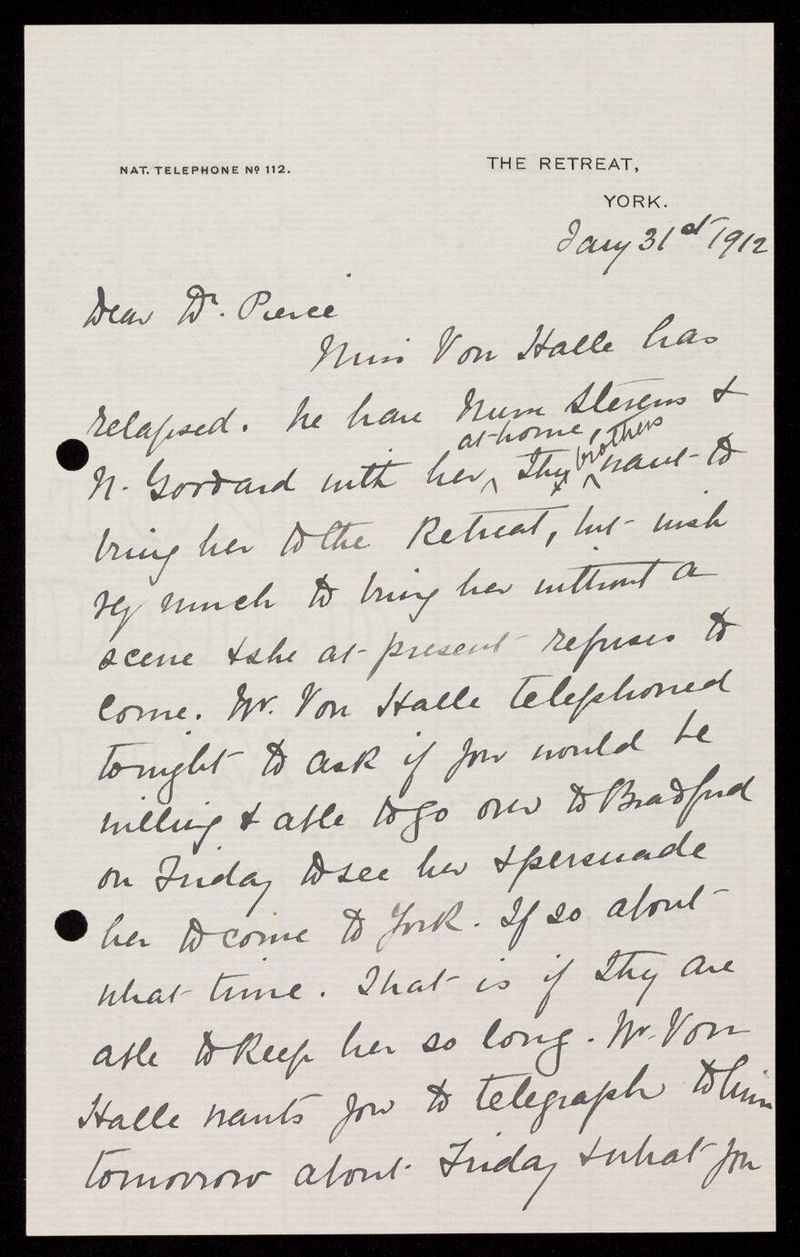 NAT. TELEPHONE Nº 112.
THE RETREAT,
YORK.
Jany 31st 1912
Dear Dr. Pierce
Miss Von Halle has
relapsed. We have Nurse Stevens &
at home, brothers
N. Goddard with her ^ They ^ want to
bring her to the Retreat, but wish
very much to bring her without a
scene & she at present refuses to
come. Mr. Von Halle telephoned
tonight to ask if you would be
willing & able to go over to Bradford
on Friday to see her & persuade
her to come to York. If so about
what time. That is if they are
able to keep her so long. Mr. Von
Halle wants you to telegraph to him
tomorrow about Friday & what you